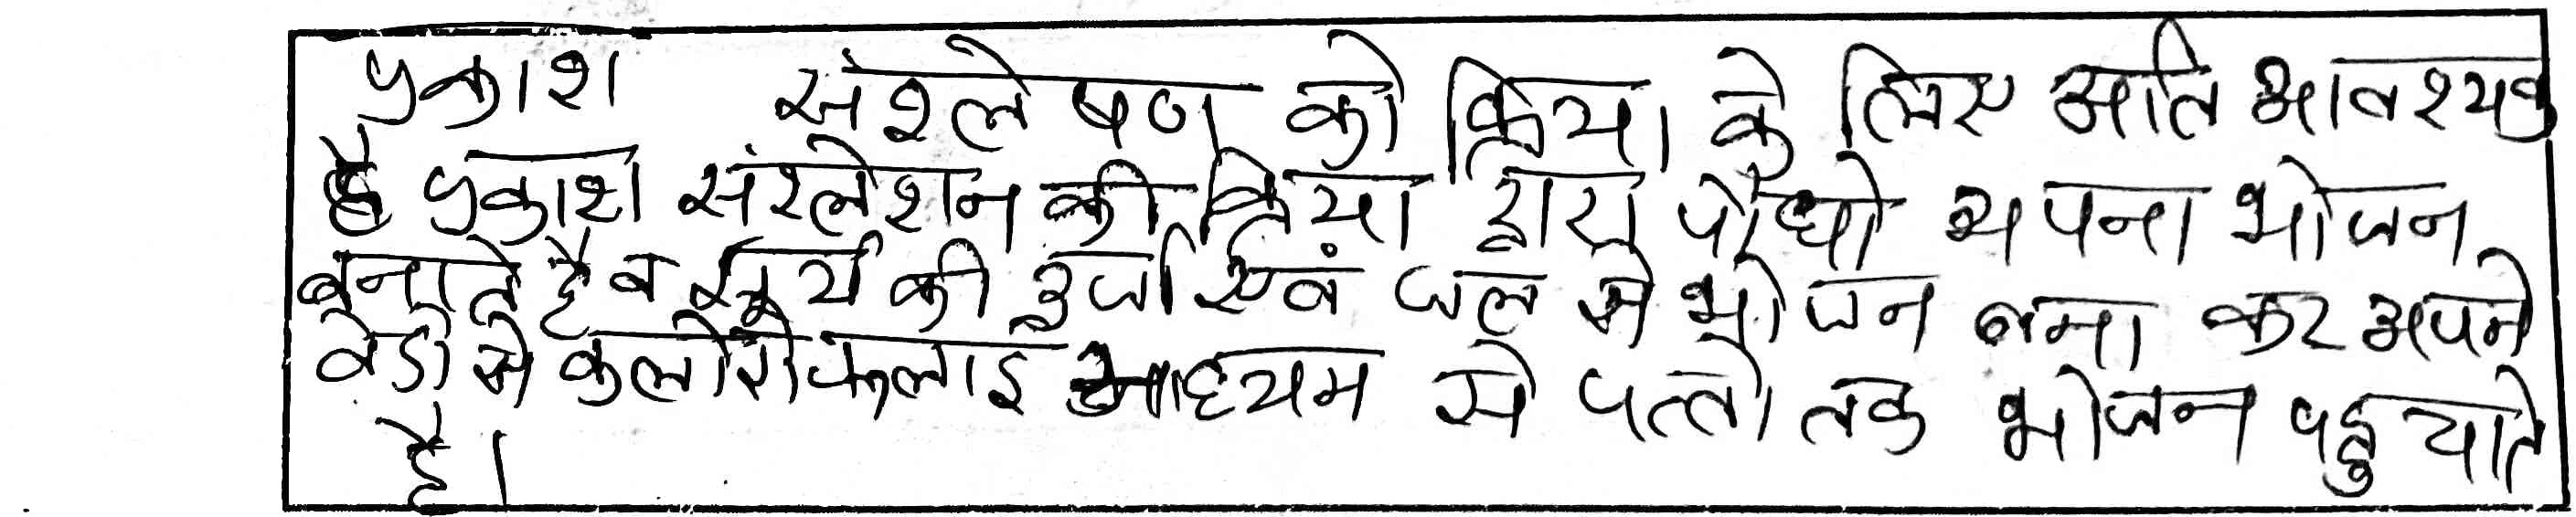 प्रकाश संश्लेषण की क्रिया के लिए अति आवश्यक
है प्रकाश संश्लेशन की क्रिया द्वारा पौधो अपना भोजन
बनाते है व सूर्य की उर्जा एवं जल से भोजन बना कर अपने
से कलोरोफलाई माध्यम से पत्तो तक भोजन पहुचाते
है।